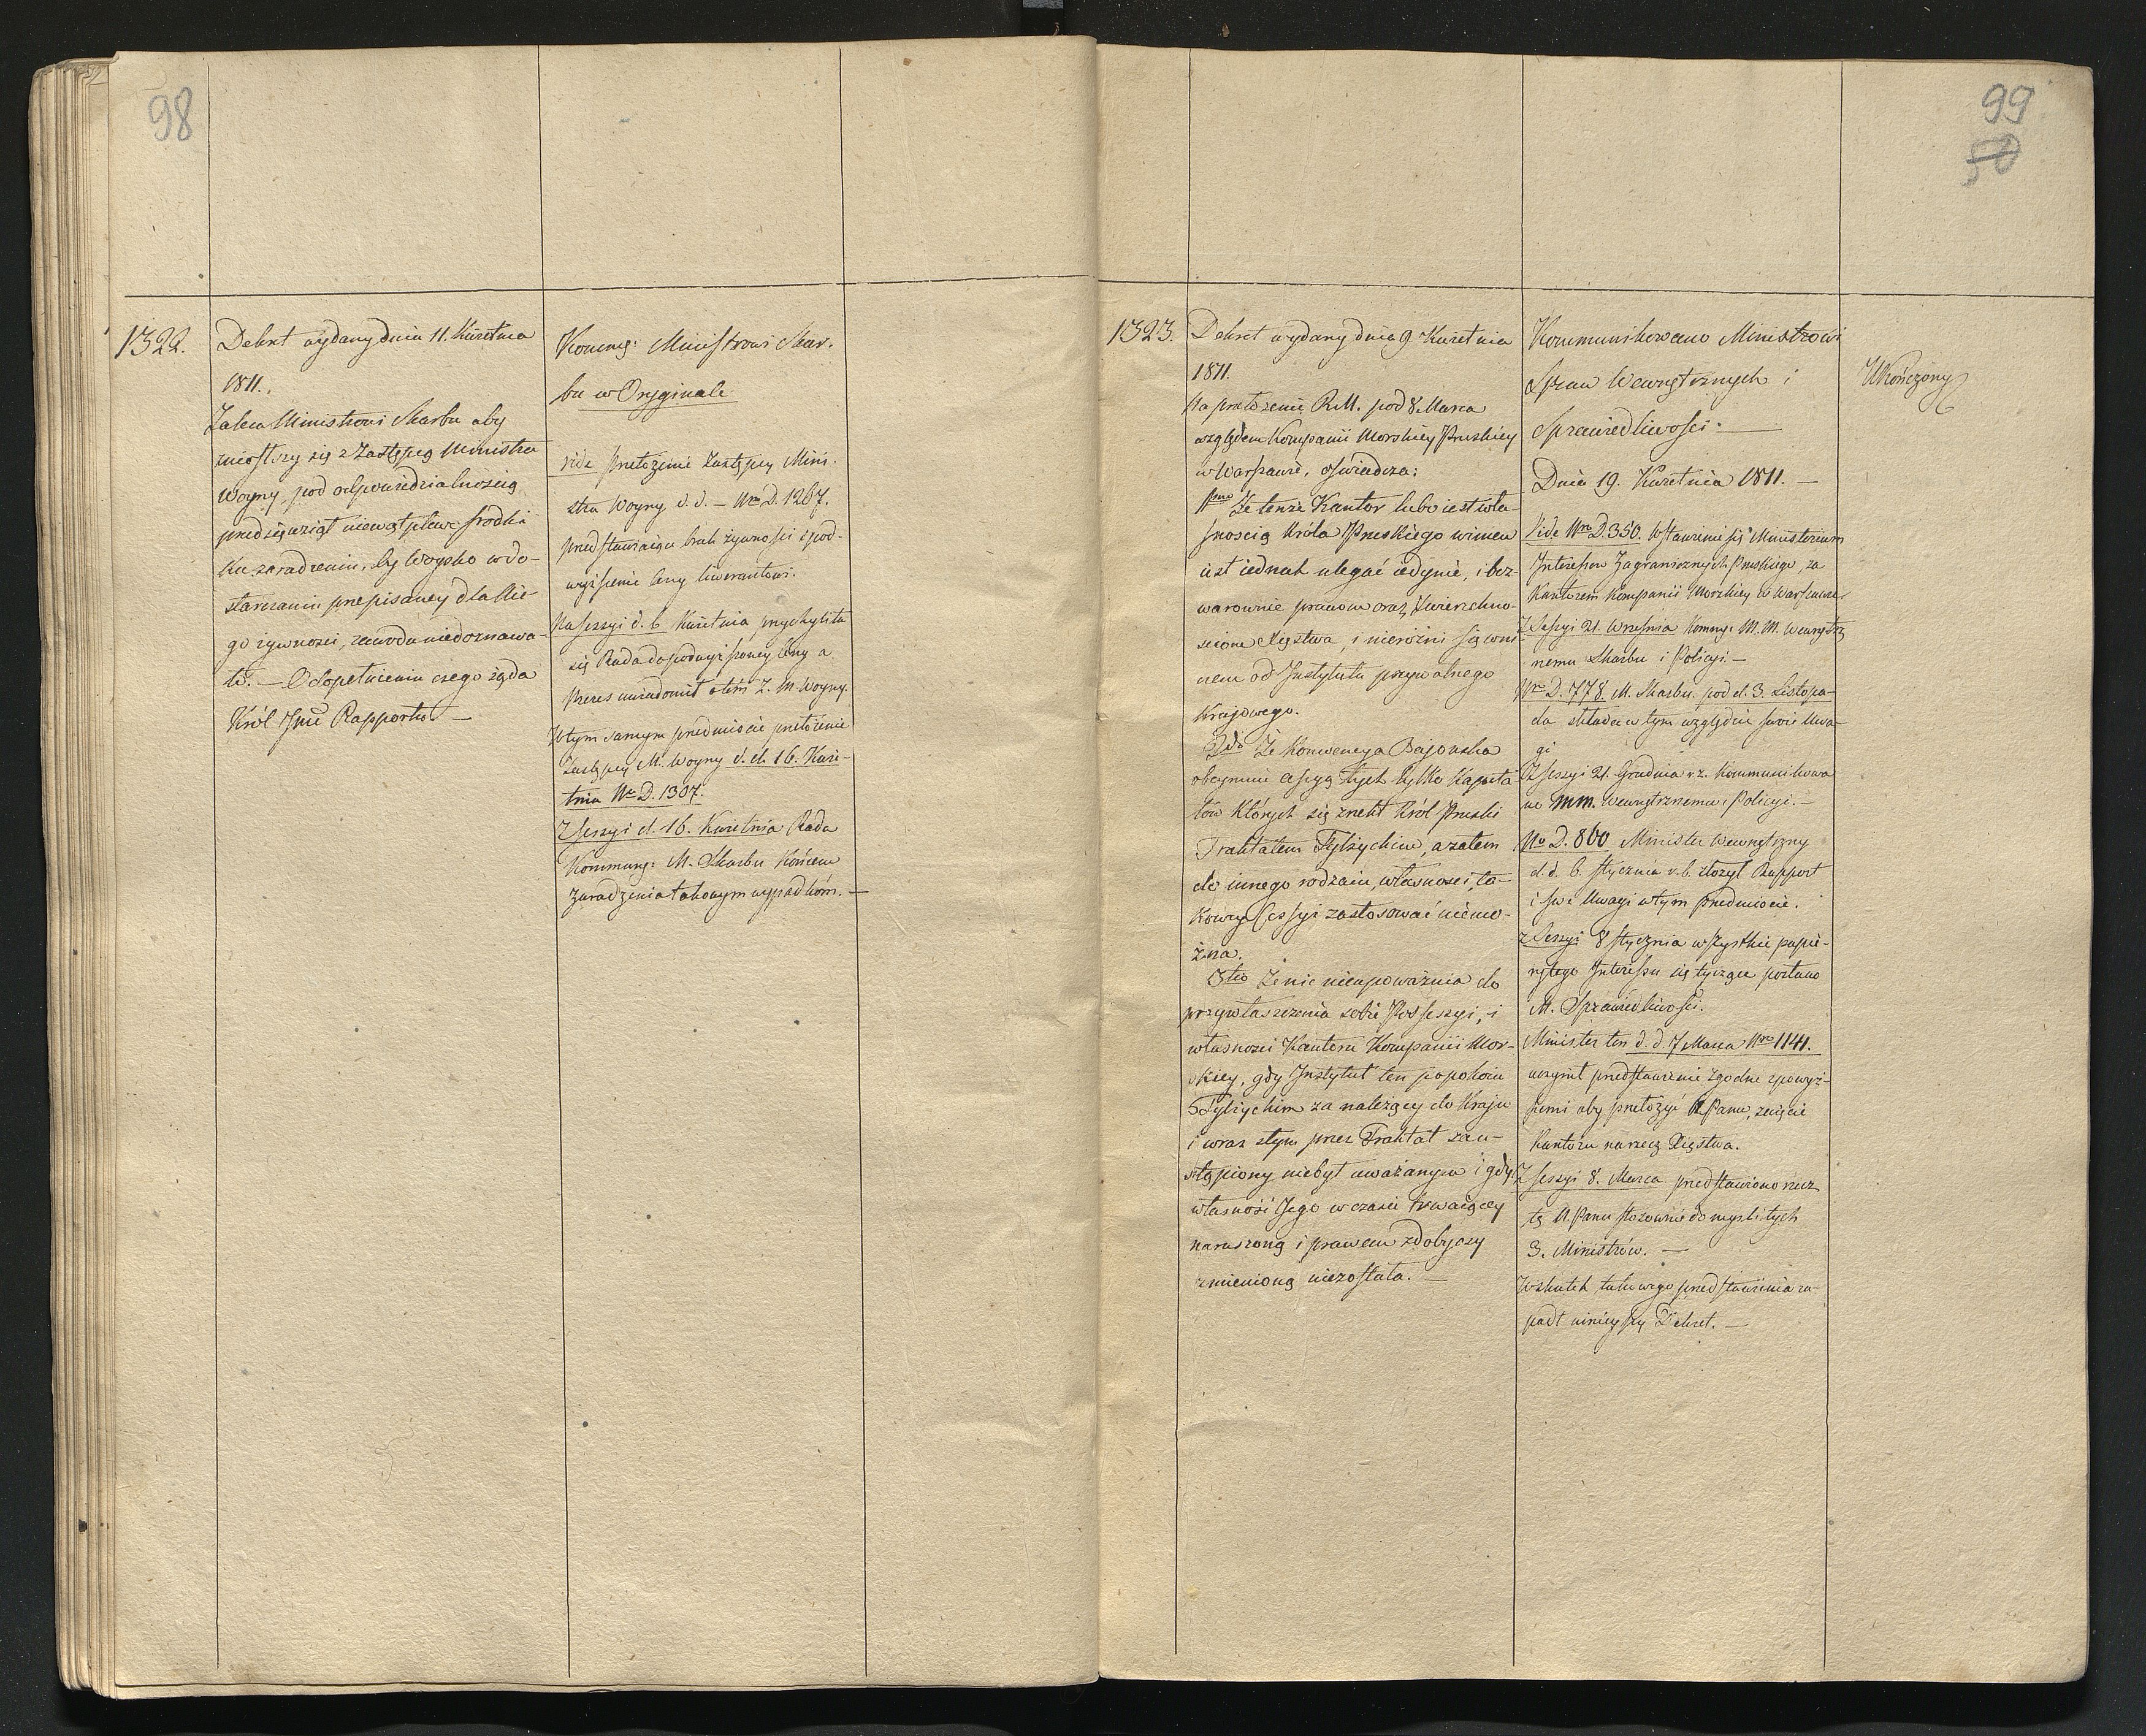 98
1322.
Dekret wydany dnia 11. Kwietnia
1811.
Zaleca Ministrowi Skarbu aby
zniosłszy się z Zastępcą Ministra
Woyny, pod odpowiedzialnością
przedsięwziął niewątpliwe środki
ku zaradzeniu, by Woysko w do-
starczaniu przepisaney dla Nie-
go żywności, zawodu niedoznawa-
ło. — O dopełnieniu czego żąda
Król Jmć Rapportu —
Kommg: Ministrowi Skar-
bu w Oryginale
vide przełożenie Zastępcy Mini-
stra Woyny d. d. — Nro D. 1267.
przedstawiaiąca brak żywności i pod-
wyższenie ceny liwerantowi.
Na sessyi d. 6 Kwietnia przychyliła
się Rada do podwyższoney ceny a
Prezes uwiadomił o tem Z. M. Woyny.
W tym samym przedmiocie przełożenie
Zastępcy M. Woyny d. d. 16. Kwie-
tnia Nro D. 1307.
Z sessyi d. 16. Kwietnia Rada
Kommung: M. Skarbu końcem
zaradzenia takowym wypadkom. —
99
50
1323.
Dekret wydany dnia 9 Kwietnia
1811.
Na przełożenie R.M. pod 8 Marca
względem Kompanii Morskiey Pruskiey
w Warszawie, oświadcza:
1mo Że tenże Kantor lubo iest wła-
snością Króla Pruskiego winien
iest iednak ulegać iedynie, i bez-
warownie prawom oraz Zwierzchno-
ściom Xięstwa, i nieróżni się w ni-
czem od Instytutu prywatnego
Krajowego.
2do Że Konwencya Bajońska
obeymuie cessyą tych tylko Kapita-
łów których się zrzekł Król Pruski
Traktatem Tylżyckim, a zatem
do innego rodzaiu, własności, ta-
kowey Cessyi zastosować niemo-
żna.
3tio Że nic nieupoważnia do
przywłaszczenia sobie Possessyi, i
własności Kantoru Kompanii Mor-
skiey, gdy Instytut ten po pokoiu
Tylżyckim za należący do Kraju
i wraz z tym przez Traktat zau-
stąpiony niebył uważanym i gdy
własność Jego w czasie trwaiącey
naruszoną i prawem zdobyczy
zmienioną niezostała. —
Kommunikowano Ministrowi
Spraw Wewnętrznych i
Sprawiedliwości. —
Dnia 19. Kwietnia 1811. —
Vide Nro D. 350. Wstawienie się Ministerium
Interessow Zagranicznych Pruskiego, za
Kantorem Kompanii Morskiey w Warszawie.
Z Sessyi 21. Września Kommg: M.M. Wewnętrz-
nemu Skarbu i Policyi. —
Nro D. 778. M. Skarbu. pod d. 3. Listopa-
da składa w tym względzie swoie Uwa-
gi
Z sessyi 21. Grudnia r.z. Kommunikowa-
no MM. Wewnętrznemu i Policyi. —
No D. 860 Minister Wewnętrzny
d. d. 6. stycznia r.b. złożył Rapport
i swe Uwagi w tym przedmiocie.
z Sessyi 8 stycznia wszystkie papie-
ry tego Interessu się tyczące posłano
M. Sprawiedliwości.
Minister ten d. d. 7 Marca Nro 1141.
uczynił przedstawienie zgodne z powyż-
szemi aby przełożyć N. Panu, zaięcie
Kantoru na rzecz Xięstwa.
Z sessyi 8. Marca przedstawiono rzecz
tę N. Panu stosownie do myśli tych
3. Ministrów. —
W skutek takowego przedstawienia za-
padł ninieyszy Dekret. —
Ukończony